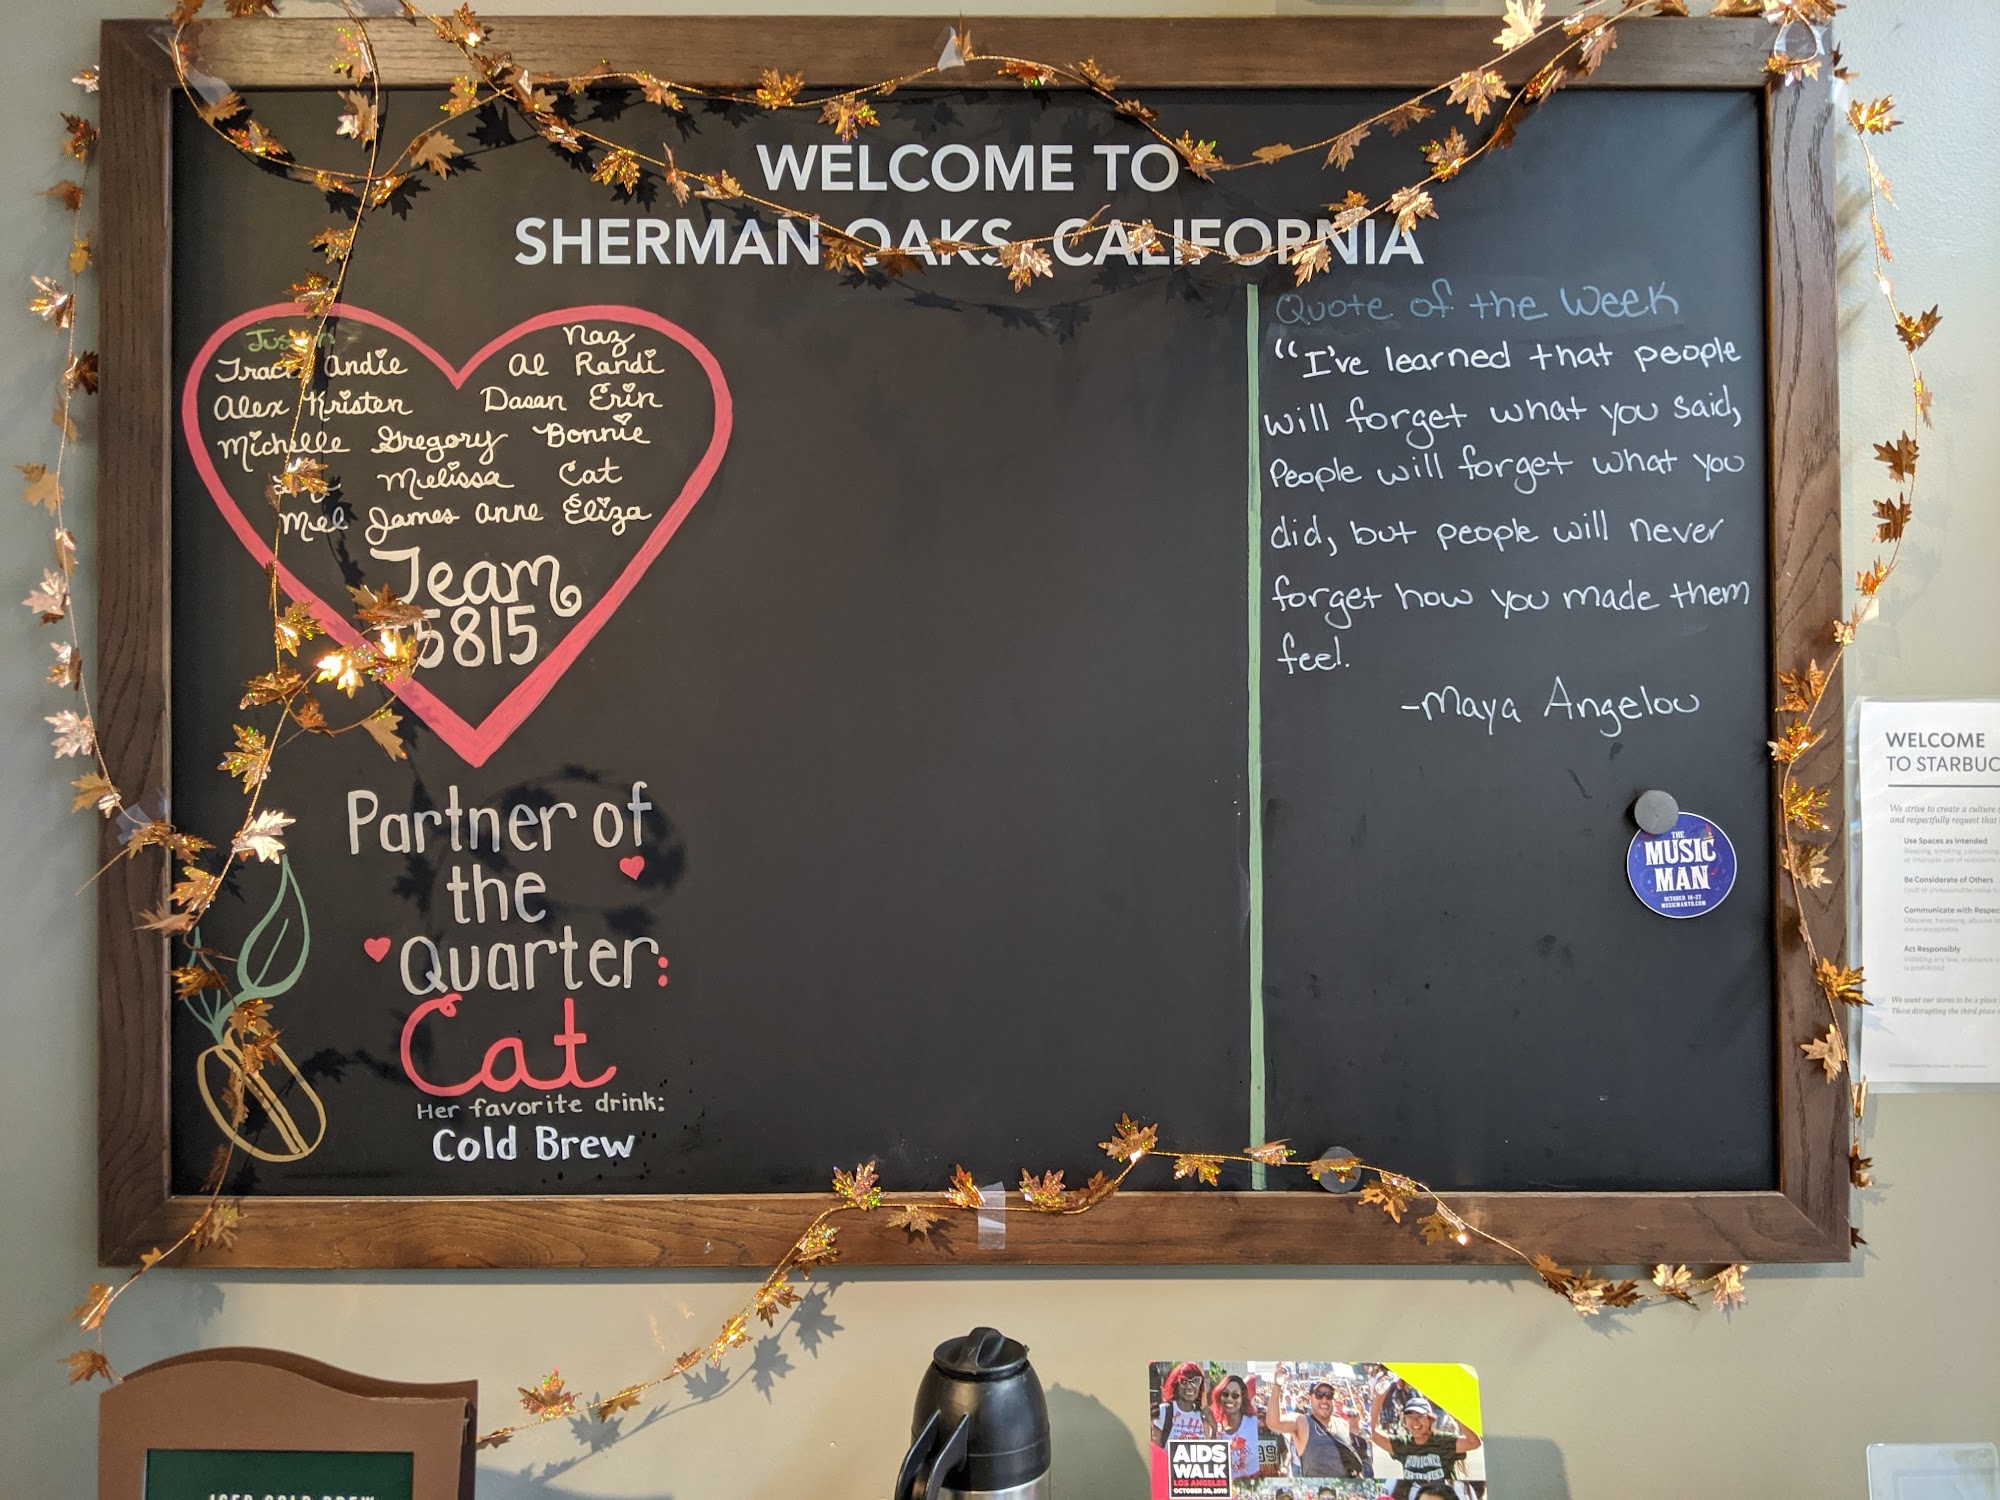 WELCOME TO
SHERMAN OAKS, CALIFORNIA
Naz
Andie Al Randi
Alex Kristen Dasan Erin
Michelle Gregory Bonnie
Melissa Cat
Mel James Anne Eliza
Team
5815
Partner of
the
Quarter:
Cat
Her favorite drink:
Cold Brew
Quote of the Week
"I've learned that people
will forget what you said,
People will forget what you
did, but people will never
forget how you made them
feel.
-Maya Angelou
THE
MUSIC
MAN
WELCOME
TO STARBUC
We strive to create a culture
and respectfully request that
Use Spaces as Intended
Be Considerate of Others
Communicate with Respec
Act Responsibly
We want our stores to be a place
Those disrupting the third place
AIDS
WALK
LOS ANGELES
OCTOBER 20, 2019
ICED COLD BREW